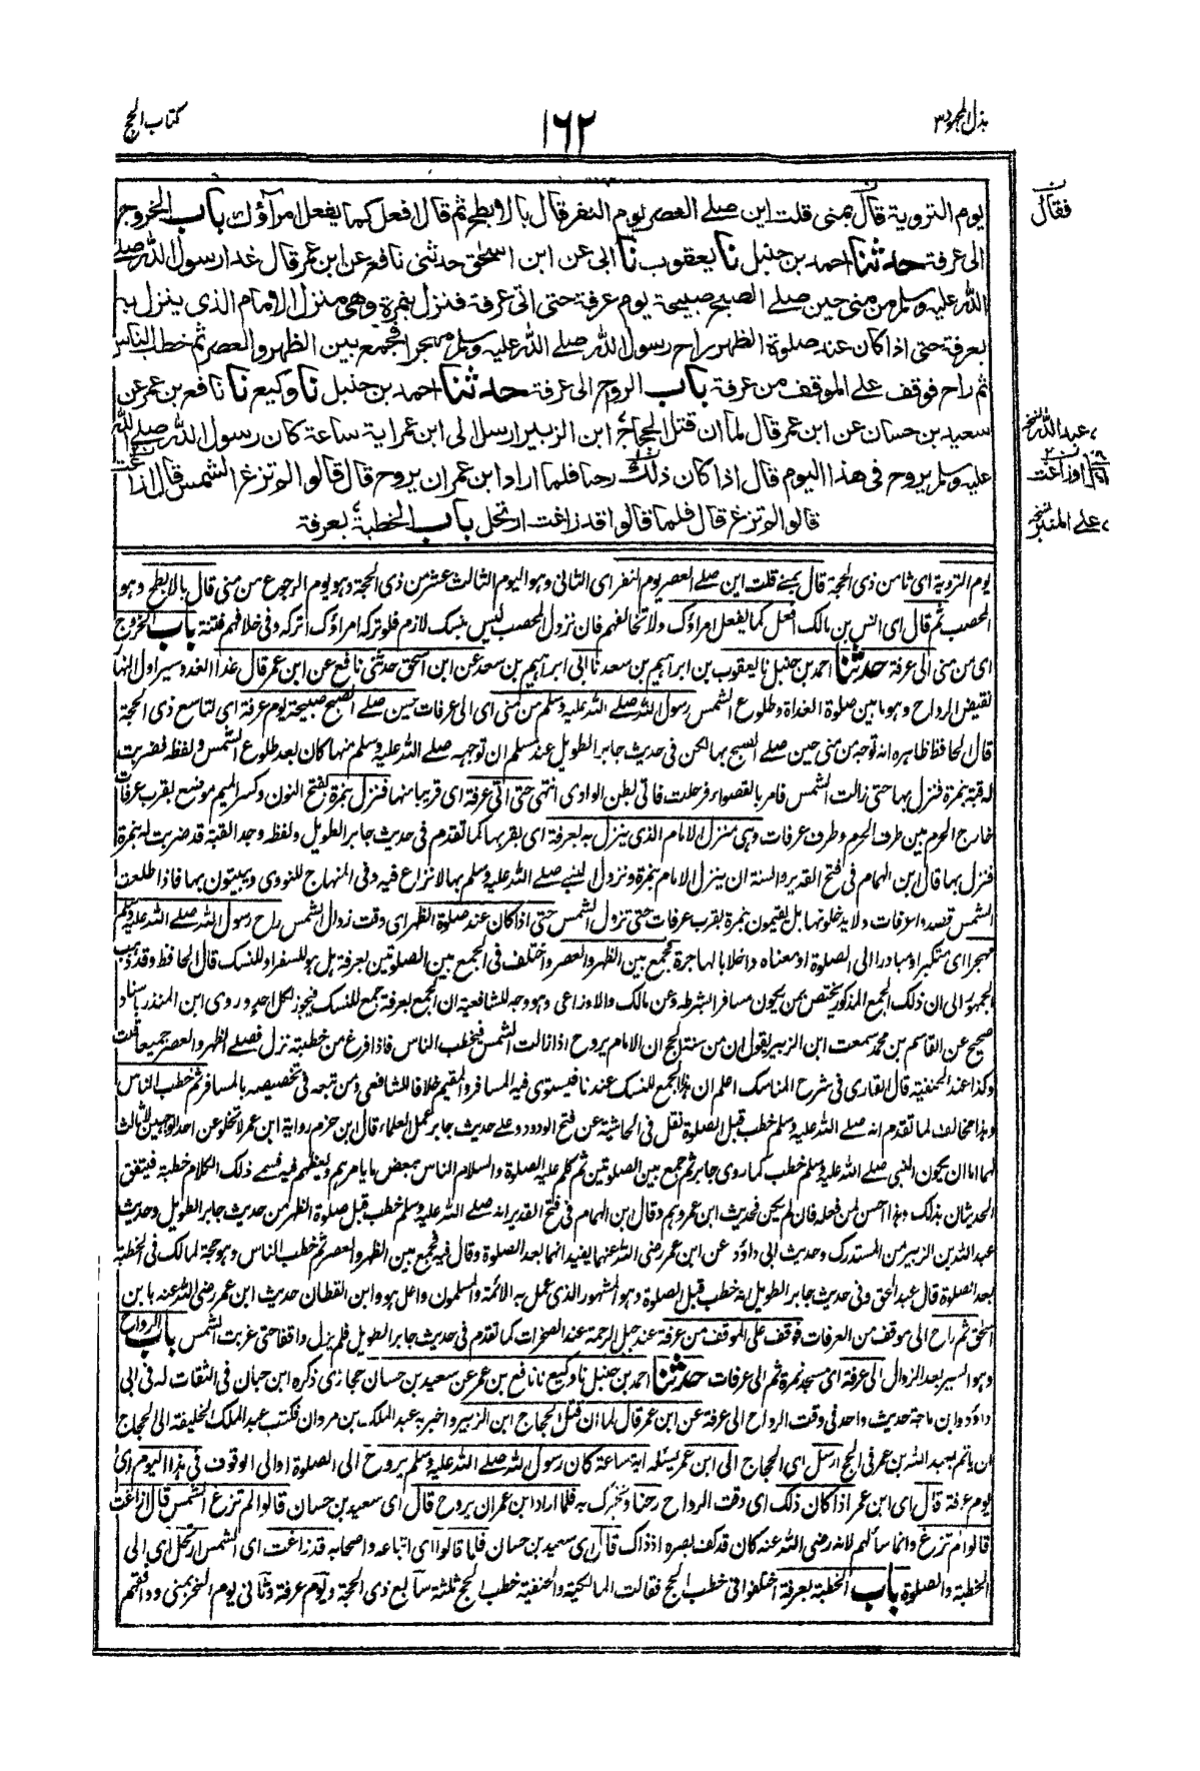 بذل المجهود ٣
١٦٢
كتاب الحج
يوم التروية قال بمنى قلت اين صلے العصر يوم النفر قال بالابطح ثم قال افعل كما يفعل امرآؤك باب الخروج
الى عرفة حدثنا احمد بن حنبل نا يعقوب نا ابى عن ابن اسحٰق حدثنى نافع عن ابن عمر قال غدا رسول الله صلے
الله عليه وسلم من منى حين صلے الصبح صبيحة يوم عرفة حتى اتى عرفة فنزل بنمرة وهى منزل الامام الذى ينزل به
بعرفة حتى اذا كان عند صلوة الظهر راح رسول الله صلے الله عليه وسلم مهجرا فجمع بين الظهر والعصر ثم خطب الناس
ثم راح فوقف على الموقف من عرفة باب الرواح الى عرفة حدثنا احمد بن حنبل نا وكيع نا نافع بن عمر عن
سعيد بن حسان عن ابن عمر قال لما ان قتل الحجاج ابن الزبير ارسل الى ابن عمر اية ساعة كان رسول الله صلے الله
عليه وسلم يروح فى هذا اليوم قال اذا كان ذلك رحنا فلما اراد ابن عمر ان يروح قال قالوا لم تزغ الشمس قال ازاغت
قالوا لم تزغ قال فلما قالوا قد زاغت ارتحل باب الخطبة بعرفة
فقال
عبد الله
او زاغت
على المنبر
يوم التروية اى ثامن ذى الحجة قال بمنے قلت اين صلے العصر يوم النفر اى الثانى وهو اليوم الثالث عشر من ذى الحجة وهو يوم الرجوع من منى قال بالابطح وهو
المحصب ثم قال اى انس بن مالك افعل كما يفعل امراؤك ولا تخالفهم فان نزول المحصب ليس بنسك لازم فلو تركه امراؤك اتركه وفى خلافهم فتنة باب الخروج
اى من منى الى عرفة حدثنا احمد بن حنبل نا يعقوب بن ابراهيم بن سعد نا ابى ابراهيم بن سعد عن ابن اسحٰق حدثنى نافع عن ابن عمر قال غدا الغدو سير اول النهار
نقيض الرواح وهو ما بين صلوة الغداة وطلوع الشمس رسول الله صلے الله عليه وسلم من منى اى الى عرفات حين صلے الصبح صبيحة يوم عرفة اى لتاسع ذى الحجة
قال الحافظ ظاهره انه توجه من منى حين صلے الصبح بها لكن فى حديث جابر الطويل عند مسلم ان توجهه صلے الله عليه وسلم منها كان بعد طلوع الشمس ولفظه فضربت
له قبة بنمرة فنزل بها حتى زالت الشمس فامر بالقصواء فرحلت فاتى بطن الوادى انتهى حتى اتى عرفة اى قريبا منها فنزل بنمرة بفتح النون وكسر الميم موضع بقرب عرفات
خارج الحرم بين طرف الحرم وطرف عرفات وهى منزل الامام الذى ينزل به بعرفة اى بقربها كما تقدم فى حديث جابر الطويل ولفظه وجد القبة قد ضربت له بنمرة
فنزل بها قال ابن الهمام فى فتح القدير والسنة ان ينزل الامام بنمرة ونزول النبے صلے الله عليه وسلم بها لا نزاع فيه وفى المنهاج للنووى ويبيتون بها فاذا طلعت
الشمس قصدوا عرفات ولا يدخلونها بل يقيمون بنمرة بقرب عرفات حتى تزول الشمس حتى اذا كان عند صلوة الظهر اى وقت زوال الشمس راح رسول الله صلے الله عليه وسلم
مهجرا اى متكبرا ومبادرا الى الصلوة او معناه داخلا بالهاجرة فجمع بين الظهر والعصر واختلف فى الجمع بين الصلوتين بعرفة هل هو للسفر او للنسك قال الحافظ وقد ذهب
الجمهور الى ان ذلك الجمع المذكور يختص بمن يكون مسافرا بشرطه وعن مالك والاوزاعى وهو وجه للشافعية ان الجمع بعرفة جمع للنسك فيجوز لكل احد وروى ابن المنذر باسناد
صحيح عن القاسم بن محمد سمعت ابن الزبير يقول ان من سنة الحج ان الامام يروح اذا زالت الشمس فيخطب الناس فاذا فرغ من خطبته نزل فصلے الظهر والعصر جميعا قلت
وكذا عند الحنفية قال القارى فى شرح المناسك اعلم ان هذا الجمع للنسك عندنا فيستوى فيه المسافر والمقيم خلافا للشافعى ومن تبعه فى تخصيصه بالمسافر ثم خطب الناس
وهذا مخالف لما تقدم انه صلے الله عليه وسلم خطب قبل الصلوة نقل فى الحاشية عن فتح الودود وعلى حديث جابر عمل العلماء قال ابن حزم رواية ابن عمر لا تخلو عن احد الوجهين لا ثالث
لهما اما ان يكون النبى صلے الله عليه وسلم خطب كما روى جابر ثم جمع بين الصلوتين ثم كلم عليه الصلوة والسلام الناس ببعض ما يامرهم ويعظهم فيه فسمے ذلك الكلام خطبة فيتفق
الحديثان بذلك وهذا احسن لمن فعله فان لم يكن فحديث ابن عمر وهم وقال ابن الهمام فى فتح القدير انه صلے الله عليه وسلم خطب قبل صلوة الظهر من حديث جابر الطويل وحديث
عبد الله بن الزبير من المستدرك وحديث ابى داؤد عن ابن عمر رضى الله عنهما يفيد انهما بعد الصلوة وقال فيه فجمع بين الظهر والعصر ثم خطب الناس وهو حجة لمالك فى الخطبة
بعد الصلوة قال عبد الحق وفى حديث جابر الطويل انه خطب قبل الصلوة وهو المشهور الذى عمل به الائمة والمسلمون واعل هو وابن القطان حديث ابن عمر رضى الله عنه بابن
اسحٰق ثم راح الى موقف من العرفات فوقف على الموقف من عرفة عند جبل الرحمة عند الصخرات كما تقدم فى حديث جابر الطويل فلم يزل واقفا حتى غربت الشمس باب الرواح
وهو السير بعد الزوال الى عرفة اى مسجد نمرة ثم الى عرفات حدثنا احمد بن حنبل نا وكيع نا نافع بن عمر عن سعيد بن حسان حجازى ذكره ابن حبان فى الثقات له فى ابى
داؤد وابن ماجة حديث واحد فى وقت الرواح الى عرفة عن ابن عمر قال لما ان قتل الحجاج ابن الزبير واخبر به عبد الملك بن مروان فكتب عبد الملك الخليفة الى الحجاج
ان ياتم بعبد الله بن عمر فى الحج ارسل اى الحجاج الى ابن عمر يسئله اية ساعة كان رسول الله صلے الله عليه وسلم يروح الى الصلوة او الى الوقوف فى هذا اليوم اى
يوم عرفة قال اى ابن عمر اذا كان ذلك اى وقت الرواح رحنا ونخبرك به فلما اراد ابن عمر ان يروح قال اى سعيد بن حسان قالوا لم تزغ الشمس قال ازاغت
قالوا لم تزغ وانما سألهم لانه رضى الله عنه كان قد كف بصره اذ ذاك قال اى سعيد بن حسان فلما قالوا اى اتباعه واصحابه قد زاغت اى الشمس ارتحل اى الى
الخطبة والصلوة باب الخطبة بعرفة اختلفوا فى خطب الحج فقالت المالكية والحنفية خطب الحج ثلثة سابع ذى الحجة ويوم عرفة وثانى يوم النحر بمنى ووافقهم